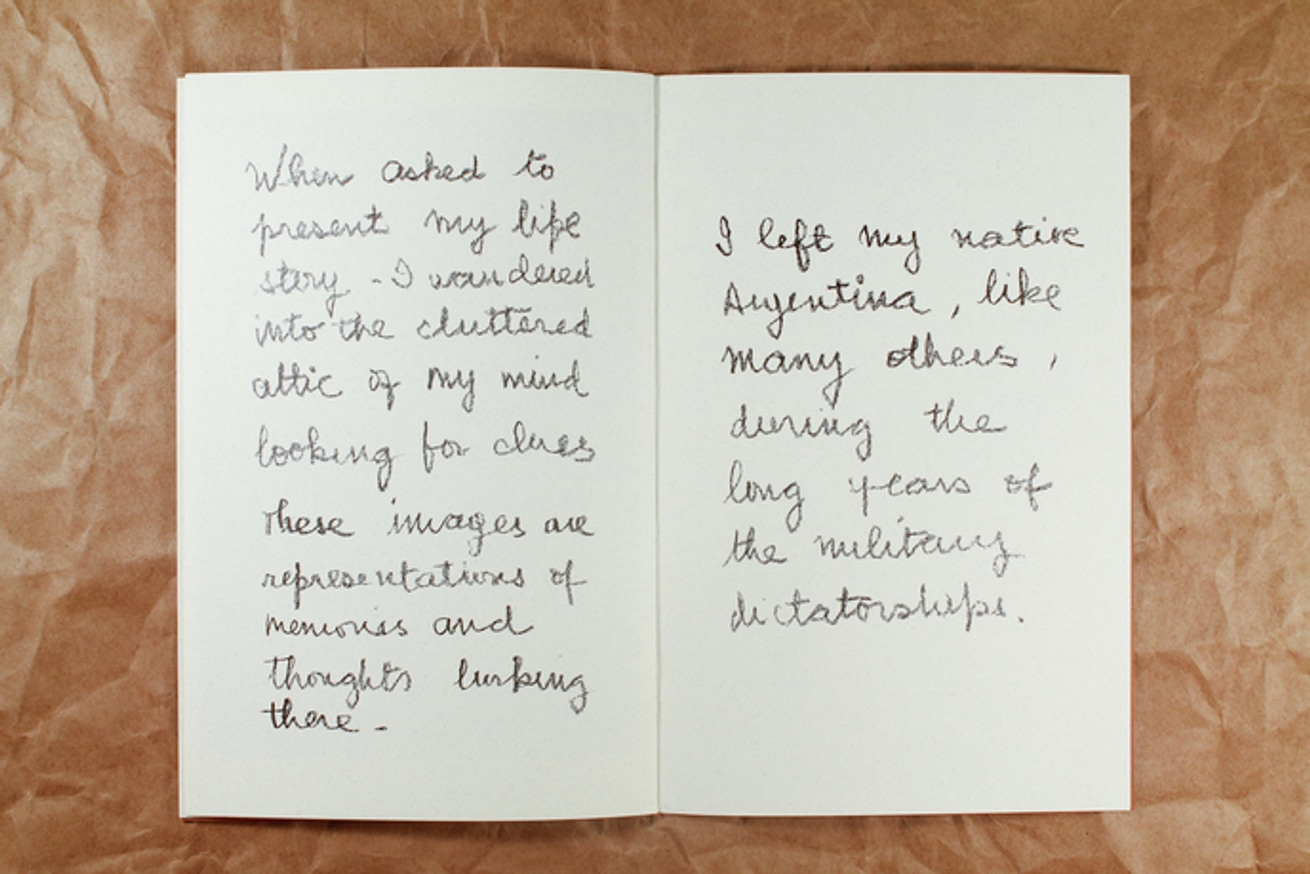 When asked to
present my life
story - I wandered
into the cluttered
attic of my mind
looking for clues
These images are
representations of
memories and
thoughts lurking
there -
I left my native
Argentina, like
many others,
during the
long years of
the military
dictatorships.